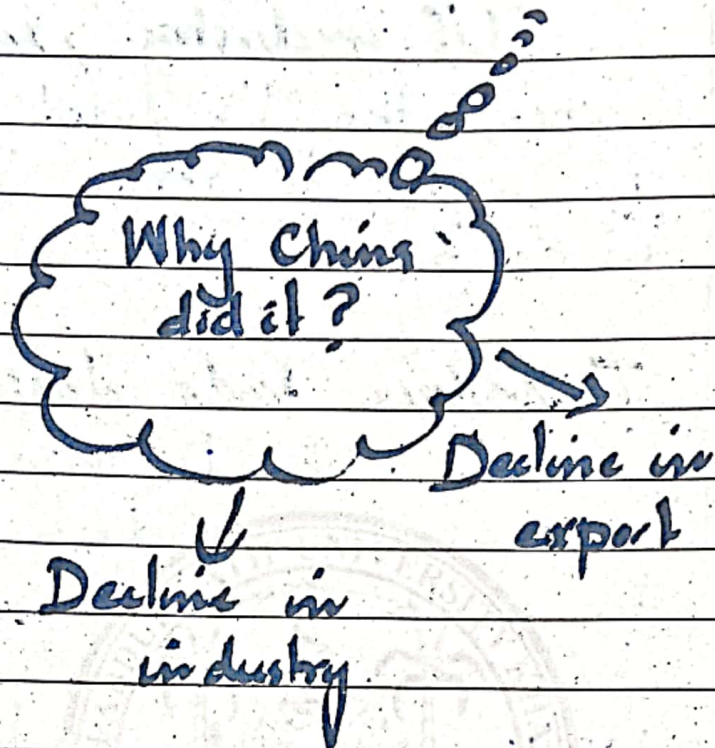 Why China
did it?
Decline in
export
Decline in
industry